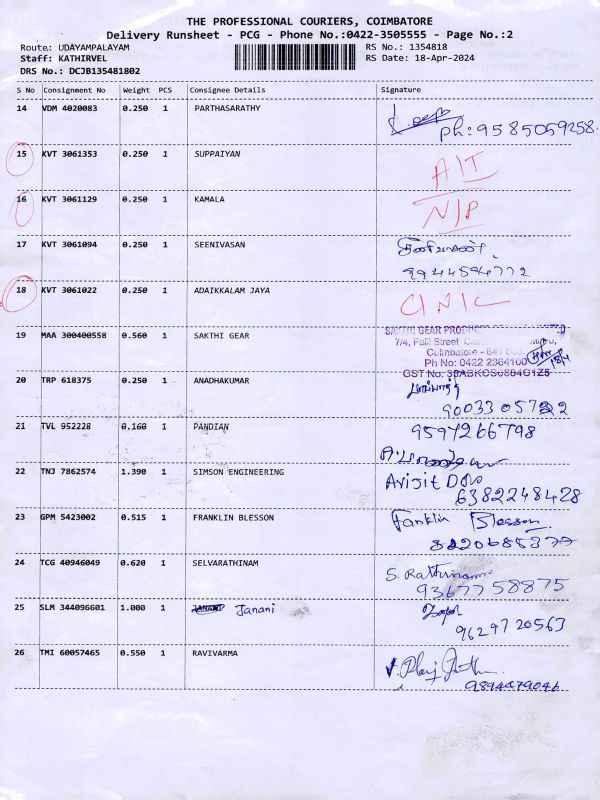 THE PROFESSIONAL COURIERS, COIMBATORE
Delivery Runsheet - PCG - Phone No.:0422-3505555 - Page No.:2
Route: UDAYAMPALAYAM RS No.: 1354818
Staff: KATHIRVEL RS Date: 18-Apr-2024
DRS No.: DCJB135481802
S No Consignment No Weight PCS Consignee Details Signature
14 VDM 4020083 0.250 1 PARTHASARATHY
ph: 9585059258
15 KVT 3061353 0.250 1 SUPPAIYAN A/T
16 KVT 3061129 0.250 1 KAMALA N/P
17 KVT 3061094 0.250 1 SEENIVASAN சீனிவாசன்
9944594772
18 KVT 3061022 0.250 1 ADAIKKALAM JAYA C/N/C
19 MAA 300400558 0.560 1 SAKTHI GEAR SAKTHI GEAR
7/4, Street
Coimbatore - 641
Ph No: 0422 2364100
GST No:
20 TRP 618375 0.250 1 ANADHAKUMAR
21 TVL 952228 0.160 1 PANDIAN 9597266798
22 TNJ 7862574 1.390 1 SIMSON ENGINEERING Avijit Das
6382248428
23 GPM 5423002 0.515 1 FRANKLIN BLESSON Franklin Blesson
24 TCG 40946049 0.620 1 SELVARATHINAM S. Rathinam
9367758875
25 SLM 344096601 1.000 1 JANANI Janani
9629720563
26 TMI 60057465 0.550 1 RAVIVARMA
9894479046